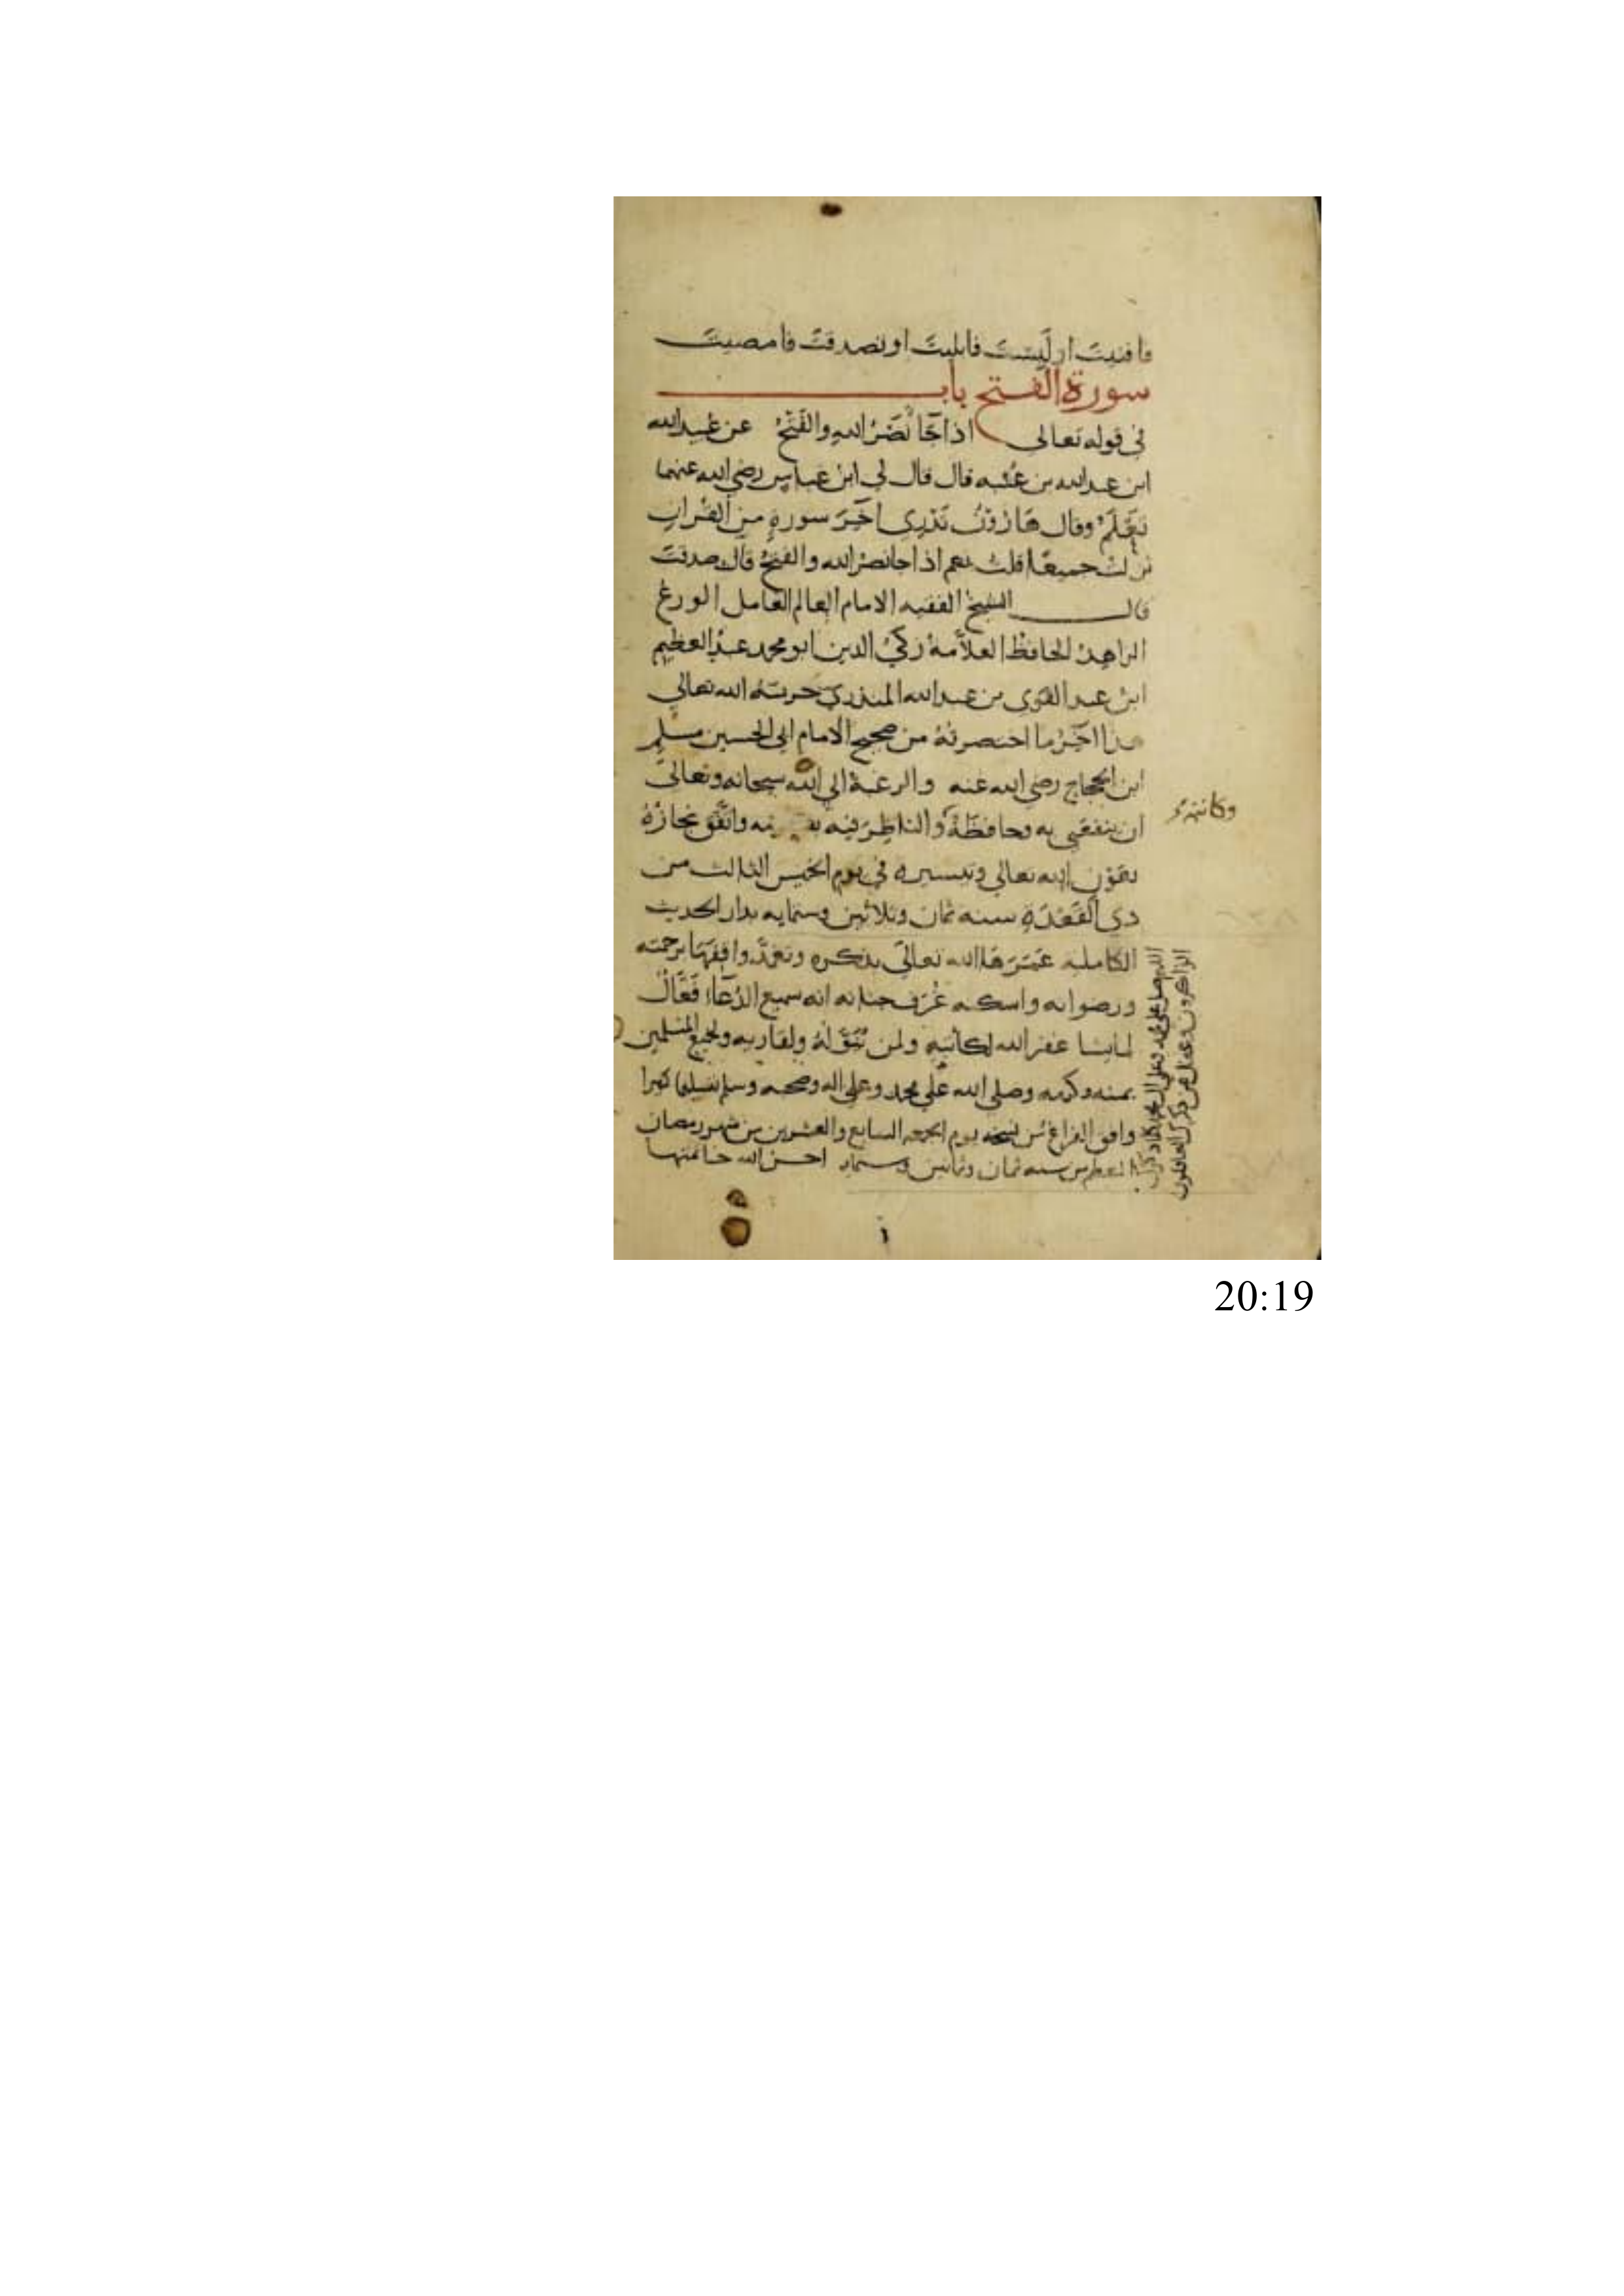 فافنيت او لبست فابليت او تصدقت فامضيت
سورة الفتح باب
في قوله تعالى اذا جا نصر الله والفتح عن عبيد الله
ابن عبد الله بن عتبه قال قال لي ابن عباس رضي الله عنهما
تعلم وقال هارون تدري اخر سورة من القران
نزلت جميعا قلت نعم اذا جا نصر الله والفتح قال صدقت
قال الشيخ الفقيه الامام العالم العامل الورع
الزاهد الحافظ العلامة زكي الدين ابو محمد عبد العظيم
ابن عبد القوي بن عبد الله المنذري حرسه الله تعالى
هذا اخر ما اختصرته من صحيح الامام ابي الحسين مسلم
ابن الحجاج رضي الله عنه والرغبة الى الله سبحانه وتعالى
ان ينفعني به وحافظه والناظر فيه واتفق نجازه
وكاتبه
بعون الله تعالى وتيسيره في يوم الخميس الثالث من
ذي القعدة سنه ثمان وثلاثين وستمايه بدار الحديث
الكامليه عمرها الله تعالى بذكره وتغمد واقفها برحمته
ورضوانه واسكنه غرف جنانه انه سميع الدعاء فعال
لما يشا غفر الله لكاتبه ولمن ولقاريه ولجميع المسلمين
بمنه وكرمه وصلى الله على محمد وعلى اله وصحبه وسلم تسليما كثيرا
وافق الفراغ من نسخه يوم الجمعه السابع والعشرين من شهر رمضان
المعظم من سنه ثمان وثمانين وستمايه احسن الله خاتمتها
اللهم صل على محمد وعلى ال محمد كلما ذكرك
الذاكرون وغفل عن ذكرك الغافلون
20:19